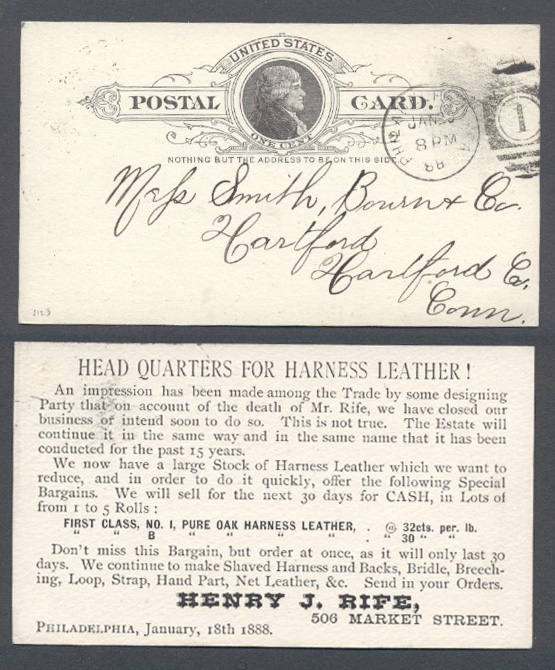 UNITED STATES
POSTAL CARD.
ONE CENT
NOTHING BUT THE ADDRESS TO BE ON THIS SIDE
JAN
8 PM
88
1
Mess Smith, Bourn & Co.
Hartford
Hartford Co.
Conn.
1123
HEAD QUARTERS FOR HARNESS LEATHER!
An impression has been made among the Trade by some designing
Party that on account of the death of Mr. Rife, we have closed our
business or intend soon to do so. This is not true. The Estate will
continue it in the same way and in the same name that it has been
conducted for the past 15 years.
We now have a large Stock of Harness Leather which we want to
reduce, and in order to do it quickly, offer the following Special
Bargains. We will sell for the next 30 days for CASH, in Lots of
from 1 to 5 Rolls:
FIRST CLASS, NO. 1, PURE OAK HARNESS LEATHER, . @ 32cts. per. lb.
" " B " " " " . " 30 " "
Don't miss this Bargain, but order at once, as it will only last 30
days. We continue to make Shaved Harness and Backs, Bridle, Breech-
ing, Loop, Strap, Hand Part, Net Leather, &c. Send in your Orders.
HENRY J. RIFE,
506 MARKET STREET.
PHILADELPHIA, January, 18th 1888.